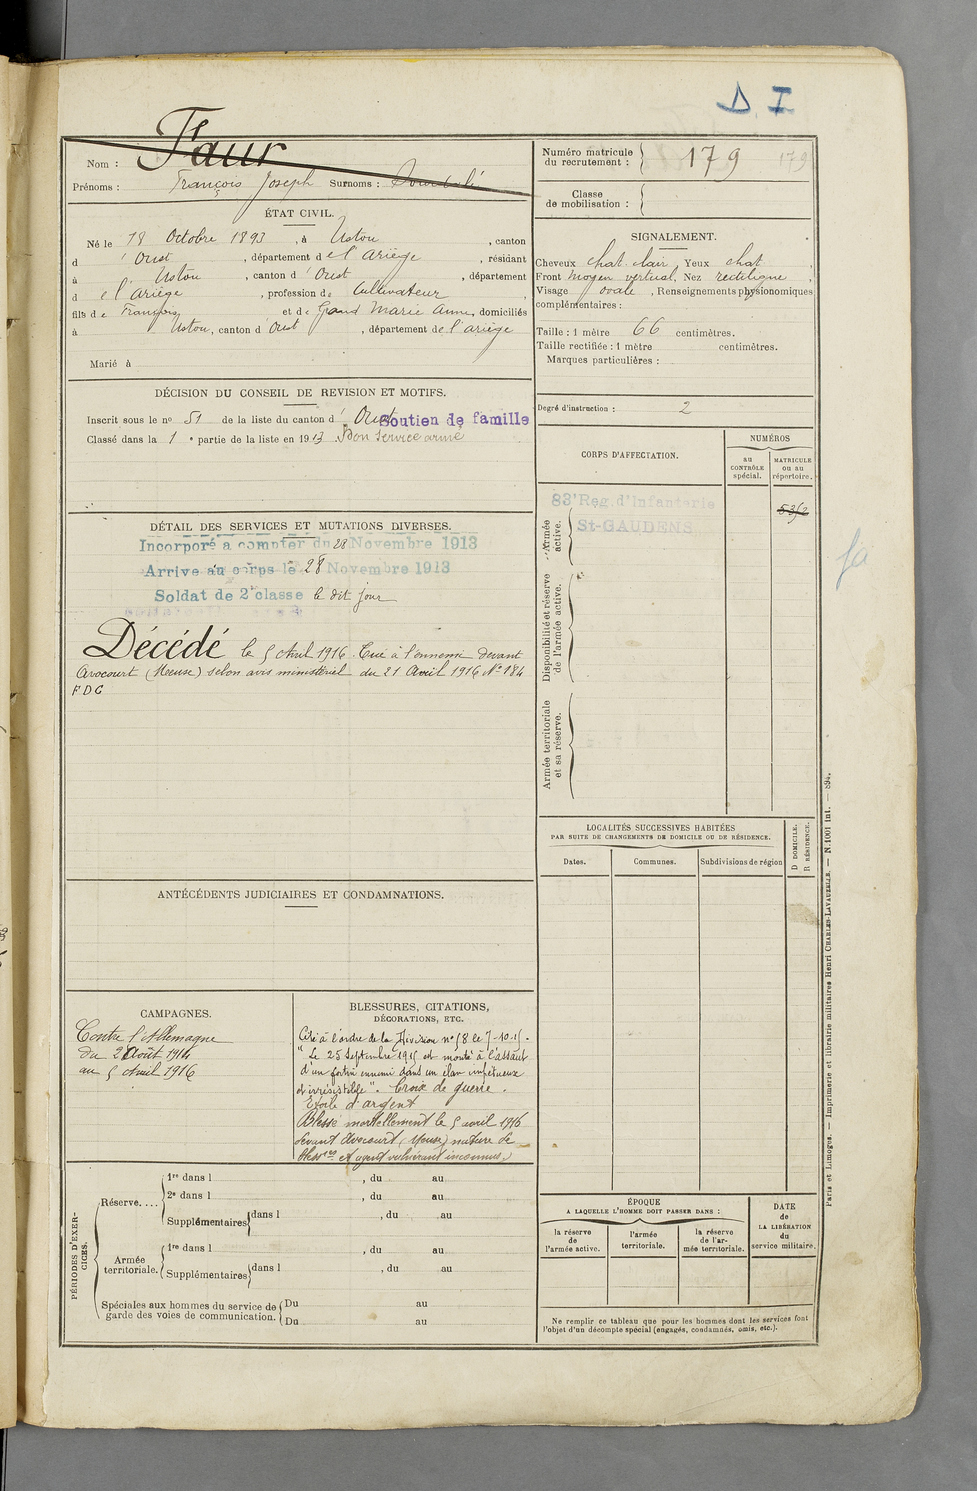 D I
Nom : Faur
Prénoms : François Joseph Surnoms :
Numéro matricule du recrutement : 179 179
Classe de mobilisation :
ÉTAT CIVIL.
Né le 18 Octobre 1893, à Ustou, canton
d'Oust, département de l'Ariège, résidant
à Ustou, canton d'Oust, département
de l'Ariège, profession de Cultivateur
fils de François et de Gand Marie Anne, domiciliés
à Ustou, canton d'Oust, département de l'ariège
Marié à
SIGNALEMENT.
Cheveux chat. clair, Yeux chat,
Front moyen vertical, Nez rectiligne,
Visage ovale, Renseignements physionomiques
complémentaires :
Taille : 1 mètre 66 centimètres.
Taille rectifiée : 1 mètre centimètres.
Marques particulières :
DÉCISION DU CONSEIL DE REVISION ET MOTIFS.
Inscrit sous le nº 51 de la liste du canton d'Oust
Soutien de famille
Classé dans la 1e partie de la liste en 1913 Bon Service armé
Degré d'instruction : 2
CORPS D'AFFECTATION.
NUMÉROS
au CONTRÔLE spécial.
MATRICULE ou au répertoire.
83e Reg. d'Infanterie
St-GAUDENS
Armée active.
Disponibilité et réserve de l'armée active.
Armée territoriale et sa réserve.
DÉTAIL DES SERVICES ET MUTATIONS DIVERSES.
Incorporé a compter du 28 Novembre 1913
Arrive au corps le 28 Novembre 1913
Soldat de 2e classe le dit jour
Décédé le 5 Avril 1916. Tué à l'ennemi devant
Avocourt (Meuse) selon avis ministériel du 21 Avril 1916 Nº 184
F D C
LOCALITÉS SUCCESSIVES HABITÉES
PAR SUITE DE CHANGEMENTS DE DOMICILE OU DE RÉSIDENCE.
Dates.
Communes.
Subdivisions de région
D DOMICILE.
R RÉSIDENCE.
ANTÉCÉDENTS JUDICIAIRES ET CONDAMNATIONS.
CAMPAGNES.
Contre l'Allemagne
du 2 Août 1914
au 5 Avril 1916
BLESSURES, CITATIONS,
DÉCORATIONS, ETC.
Cité à l'ordre de la Division nº 58 le 7-10-15.
"Le 25 Septembre 1915 est monté à l'assaut
d'un fortin ennemi dans un élan impétueux
et irrésistible". Croix de guerre.
Etoile d'argent
Blessé mortellement le 5 avril 1916
devant Avocourt (Meuse) nature de
blessres et agent vulnérant inconnus.
PÉRIODES D'EXERCICES.
Réserve....
1re dans l , du au
2e dans l , du au
Supplémentaires dans l , du au
Armée territoriale.
1re dans l , du au
Supplémentaires dans l , du au
Spéciales aux hommes du service de garde des voies de communication.
Du au
Du au
ÉPOQUE
A LAQUELLE L'HOMME DOIT PASSER DANS :
la réserve de l'armée active.
l'armée territoriale.
la réserve de l'armée territoriale.
DATE de LA LIBÉRATION du service militaire.
Ne remplir ce tableau que pour les hommes dont les services font
l'objet d'un décompte spécial (engagés, condamnés, omis, etc.).
Paris et Limoges. — Imprimerie et librairie militaires Henri CHARLES-LAVAUZELLE. — N. 1001 int. — 894.